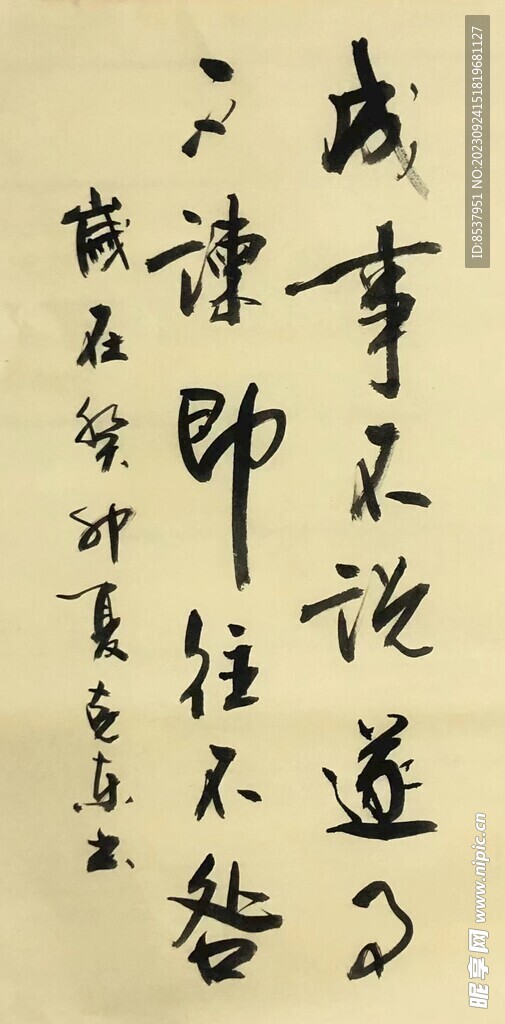 成事不说遂事
不諫即往不咎
歲在癸卯夏克东书
ID:8537951 NO:20230924151819681127
昵享网 www.nipic.cn